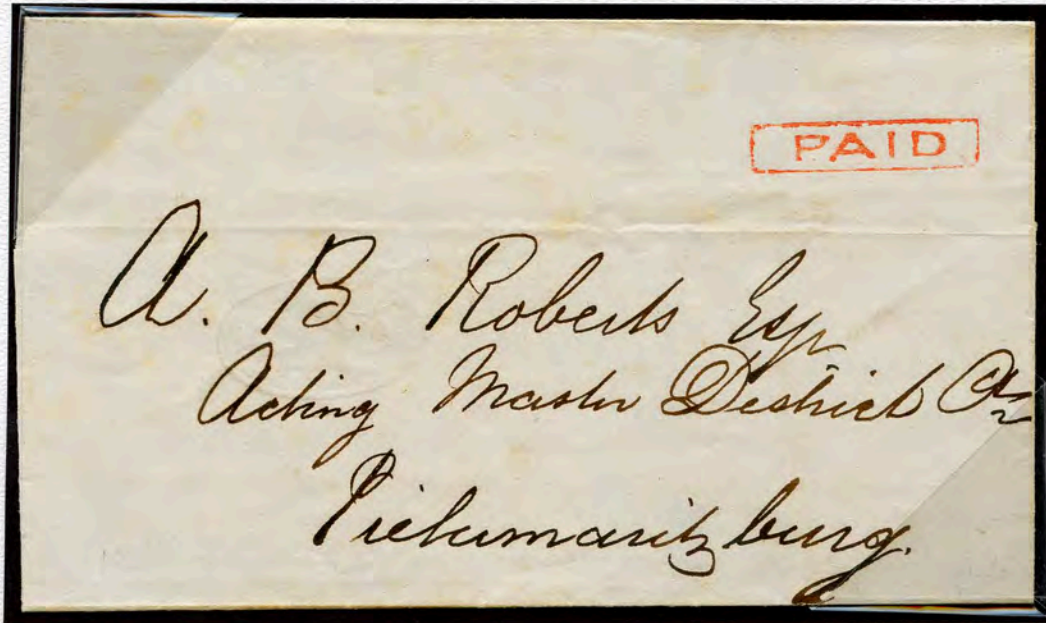 PAID
A. B. Roberts Esqr
Acting Master District
Pietermaritzburg.